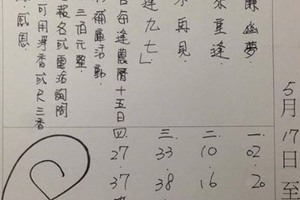 5月17日至
幽夢
重逢
再見
逢九七」
每逢農曆十五日
補庫活動
三佰元整
報名或電話詢問
可用淨香或尺三香
感恩
一. 02 20
二. 10 16
三. 33 38
四. 27 37